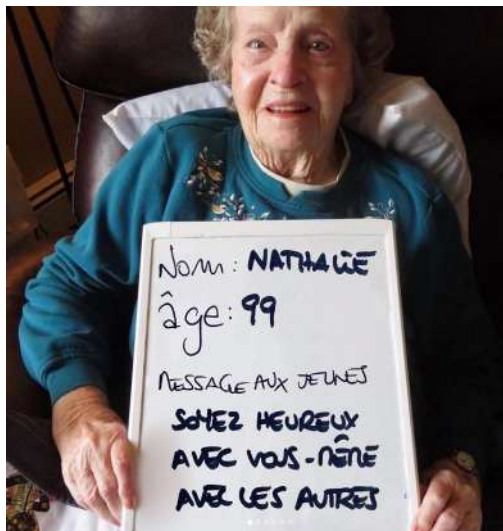 Nom: NATHALIE
âge: 99
MESSAGE AUX JEUNES
SOYEZ HEUREUX
AVEC VOUS-MÊME
AVEC LES AUTRES